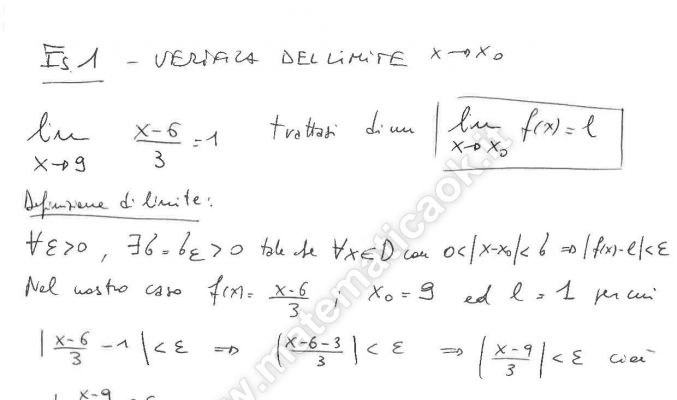 Es. 1 - VERIFICA DEL LIMITE x→x₀
lim x→9 (x-6)/3 = 1 trattasi di un lim x→x₀ f(x) = l
Definizione di limite:
∀ε>0, ∃δ=δ_ε>0 tale che ∀x∈D con 0<|x-x₀|<δ ⇒ |f(x)-l|<ε
Nel nostro caso f(x)= (x-6)/3 ; x₀=9 ed l=1 per cui
|(x-6)/3 - 1|<ε ⇒ |(x-6-3)/3|<ε ⇒ |(x-9)/3|<ε cioè
x-9
www.matematicaok.it